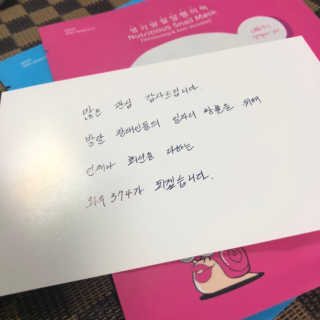 Nutritious Snail Mask
많은 관심 감사드립니다.
발달 장애인들의 일자리 창출을 위해
언제나 최선을 다하는
374가 되겠습니다.